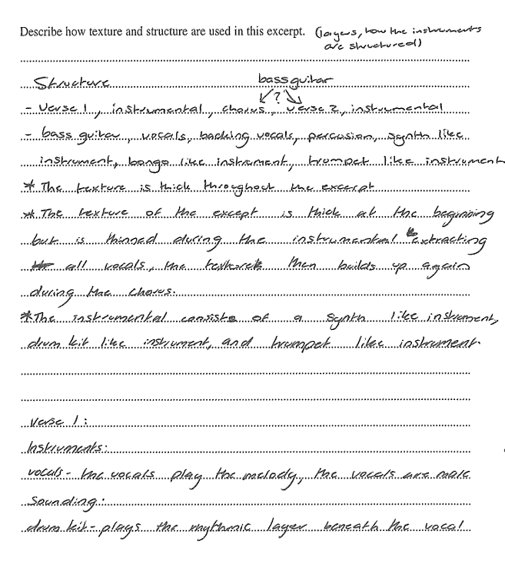 Describe how texture and structure are used in this excerpt. (layers, how the instruments
are structured)
Structure bass guitar
?
- Verse 1, instrumental, chorus, verse 2, instrumental
- bass guitar, vocals, backing vocals, percusion, synth like
instrument, bongo like instrument, trumpet like instrument
* The texture is thick throughout the excerpt
* The texture of the except is thick at the beginning
but is thinned during the instrumental extracting
all vocals, the texture then builds up again
during the chorus.
* The instrumental consists of a synth like instrument,
drum kit like instrument, and trumpet like instrument.
Verse 1:
Instruments:
vocals - the vocals play the melody, the vocals are male
Sounding:
drum kit - plays the rhythmic layer beneath the vocal